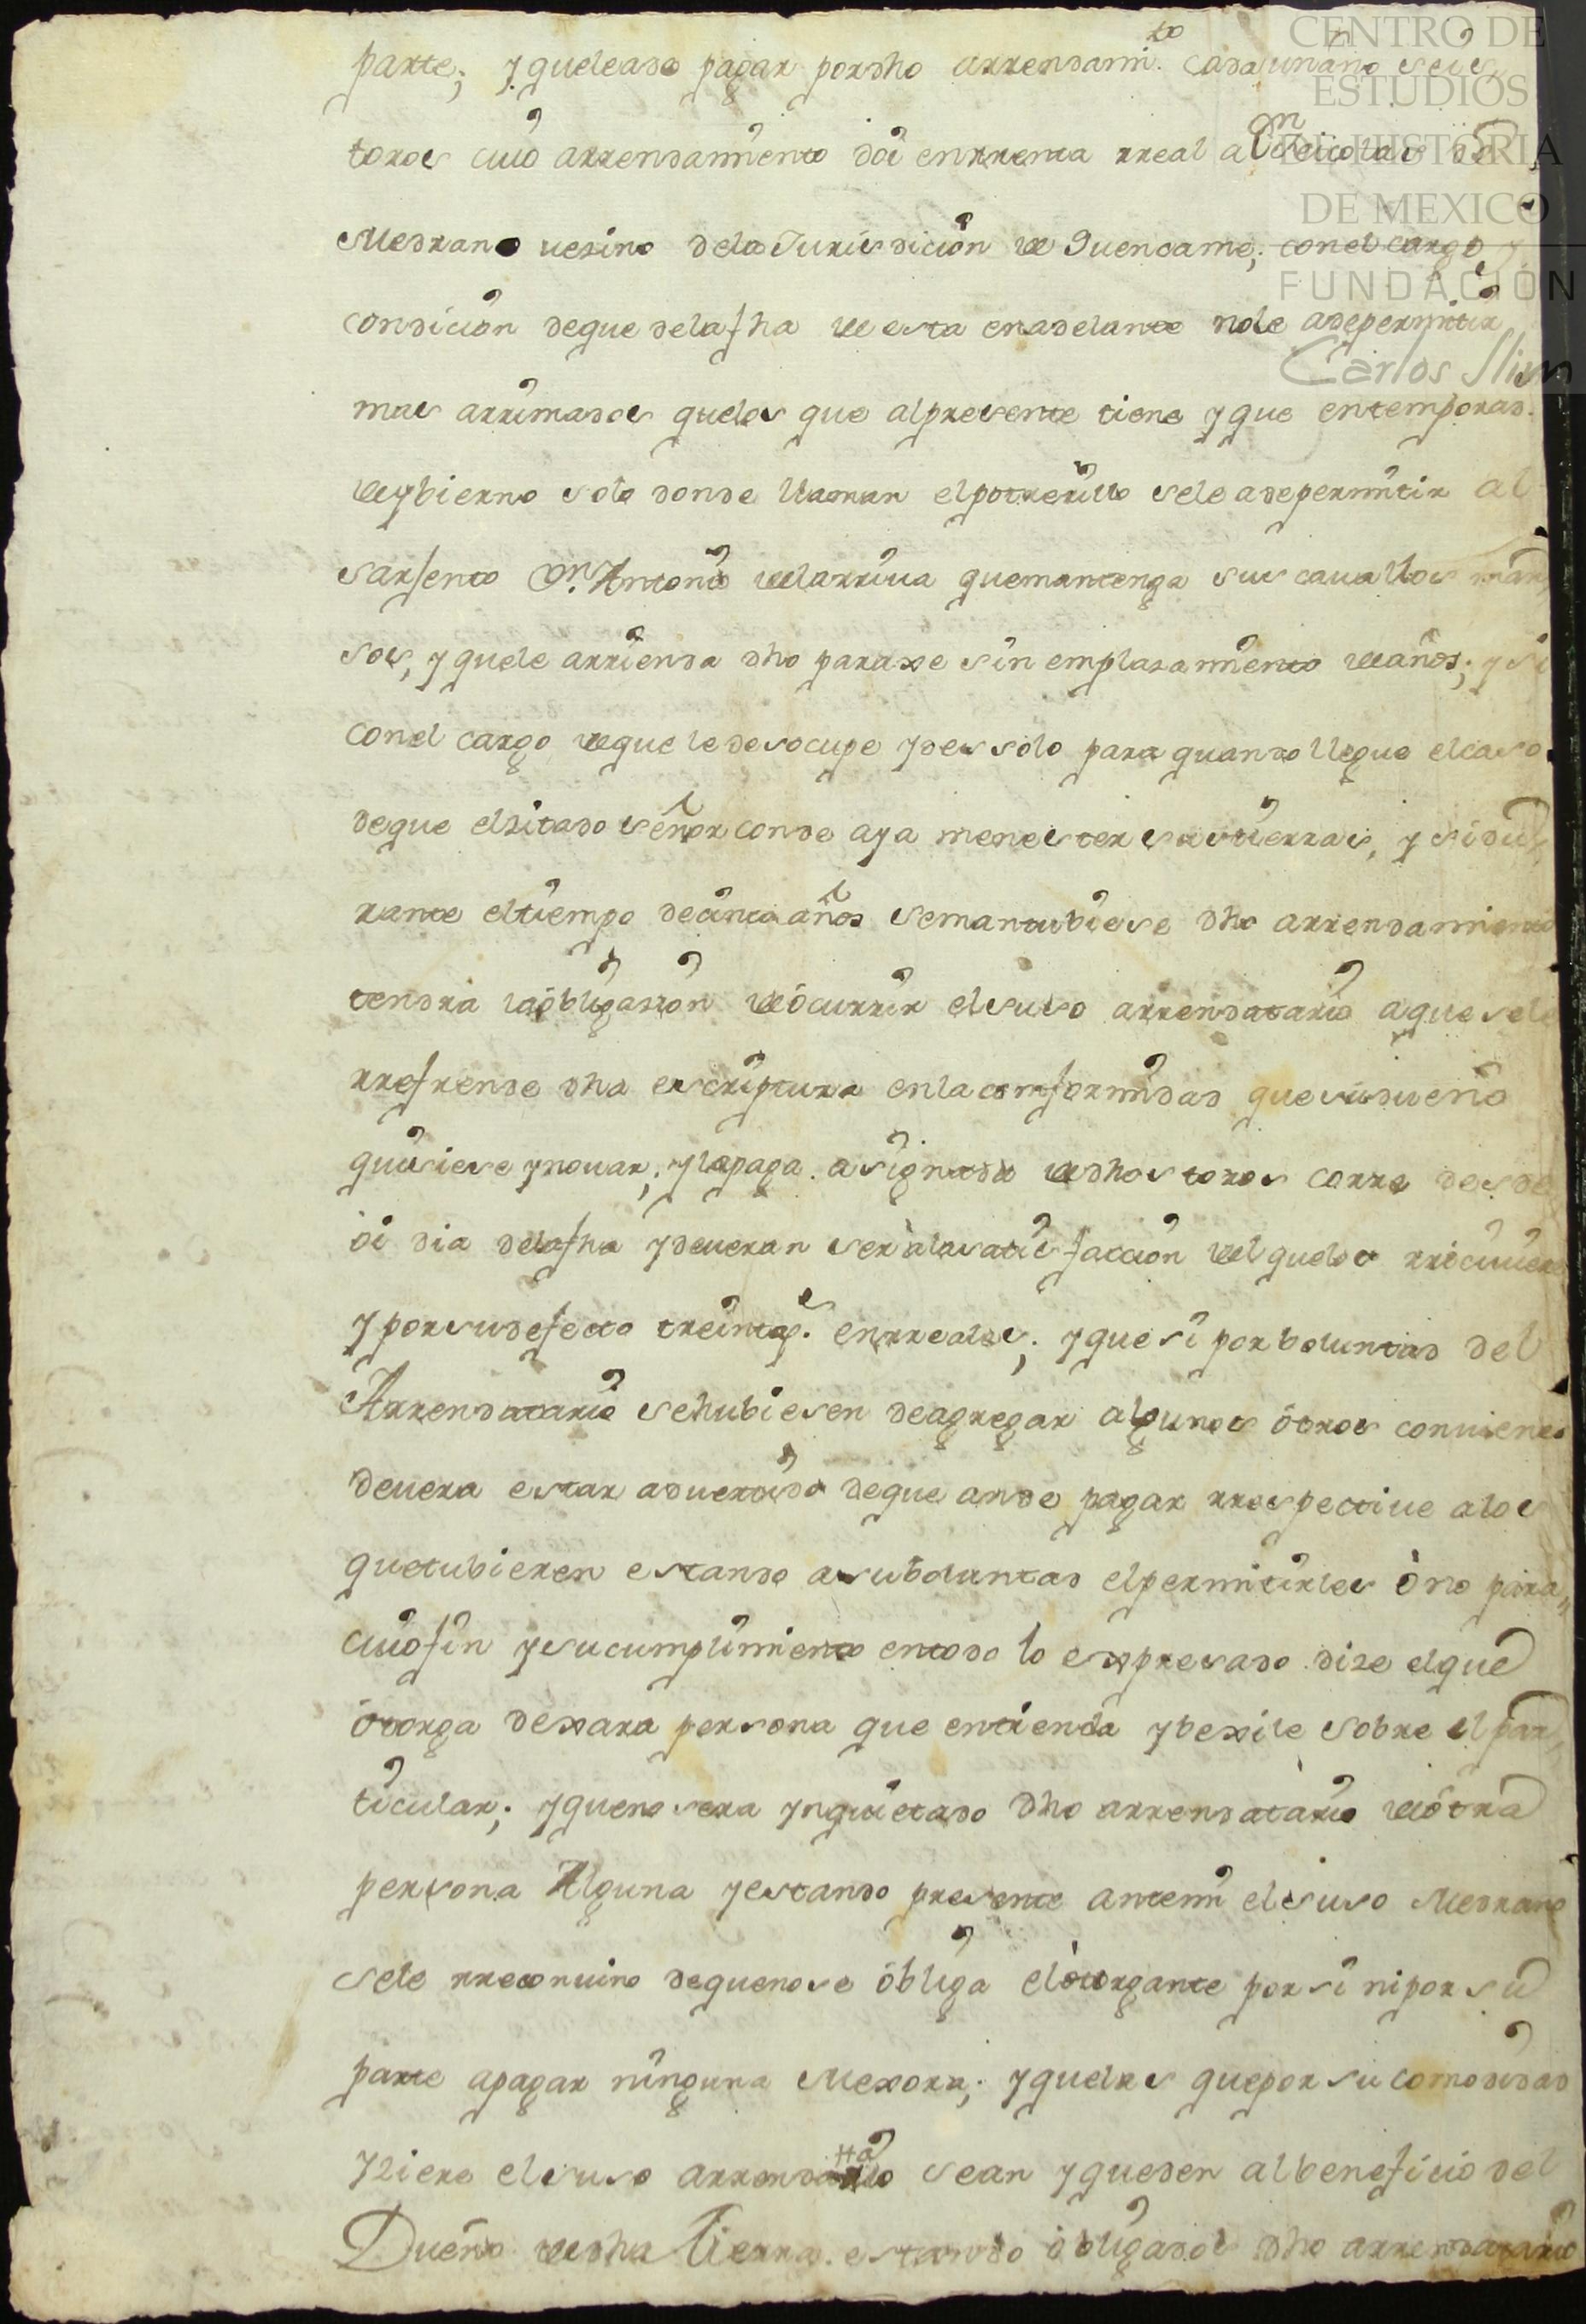 parte; y queleade pagar pordho arrendamto. cada unaño seis
toros cuio arrendamiento doi enrrenta rreal a Dn Nicolas de
Medrano vesino dela Jurisdiciôn de Guencame; conel cargo y
condiciôn deque delafha de esta enadelante nole adepermitir
mas arrimados quelos que alpresente tiene y que entemporad.
deybierno solo donde llaman elpotrerillo sele adepermitir al
sarjento Dn. Antonio delarriva quemantenga sus cavallos man,
sos, y quele arrienda dho paraxe sin emplasamiento deaños; y si
conel cargo deque ledesocupe ydessolo para quando llegue elcaso
deque elzitado señor conde aya menester sus tierras, y si du,
rante eltiempo decincoaños semantubiese dho arrendamiento
tendra laôbligasion deôcurrir elsuso arrendatario aquesele
rrefrende dha escriptura enlaconformidad quesudueño
quisiese ynovar; ylapaga asignada dedhos toros corre desde
ôi dia delafha ydeveran ser âlasatisfacciôn delquelos rreciviere
y porsudefecto treintaps. enrreales; yquesi porboluntad del
Arrendatario sehubiesen deagregar algunos ôtros convienes
devera estar advertido deque ande pagar rrespective alos
quetubieren estando asuboluntad elpermitirles ôno para,,
cuiofin ysucumplimiento entodo lo expresado dize elque
ôtorga dexara persona que entienda ybexile sobre elpar,
ticular; yqueno sera ynquietado dho arrendatario deôtra
persona Alguna yestando presente antemi elsuso Medrano
sele rreconvino dequenose ôbliga elôtorgante porsi nipor su
parte apagar ninguna Mexora; yquelas quepor su comodidad
yziere elsuso arrendattario sean yqueden albeneficio del
Dueño dedha tierra. estando ôbligado dho arrendatario
CENTRO DE
ESTUDIOS
DE HISTORIA
DE MEXICO
FUNDACIÓN
Carlos Slim